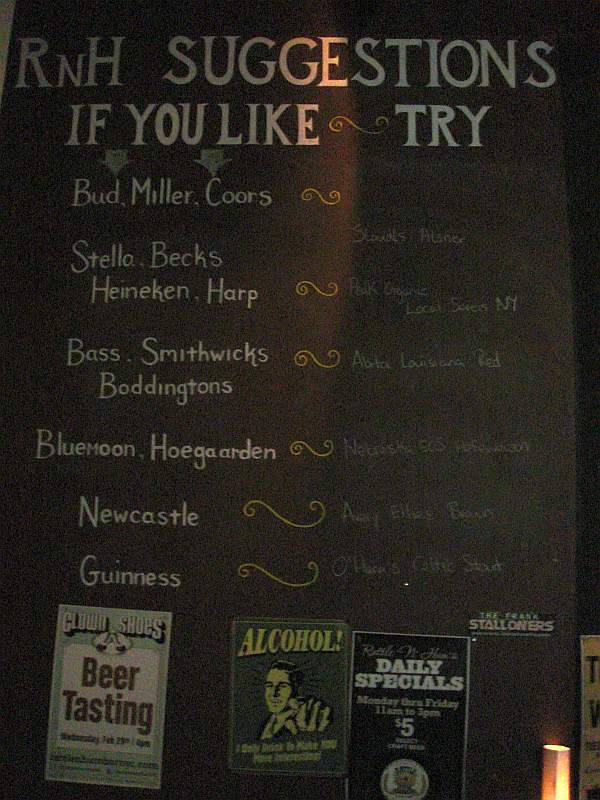 RNH SUGGESTIONS
IF YOU LIKE ~ TRY
Bud, Miller, Coors ~
Staudts Pilsner
Stella, Becks
Heineken, Harp ~ Peak Organic
Local Series NY
Bass, Smithwicks ~ Abita Louisiana Red
Boddingtons
Bluemoon, Hoegaarden ~ Nebraska EOS Hefeweizen
Newcastle ~ Avery Ellie's Brown
Guinness ~ O'Hara's Celtic Stout
THE FRANK
STALLONERS
CLOWN SHOES
Beer
Tasting
Wednesday, Feb 29th | 6pm
ALCOHOL!
I Only Drink To Make YOU
More Interesting!
Rattle-N-Hum's
DAILY
SPECIALS
Monday thru Friday
11am to 5pm
$5
SELECT
CRAFT BEER